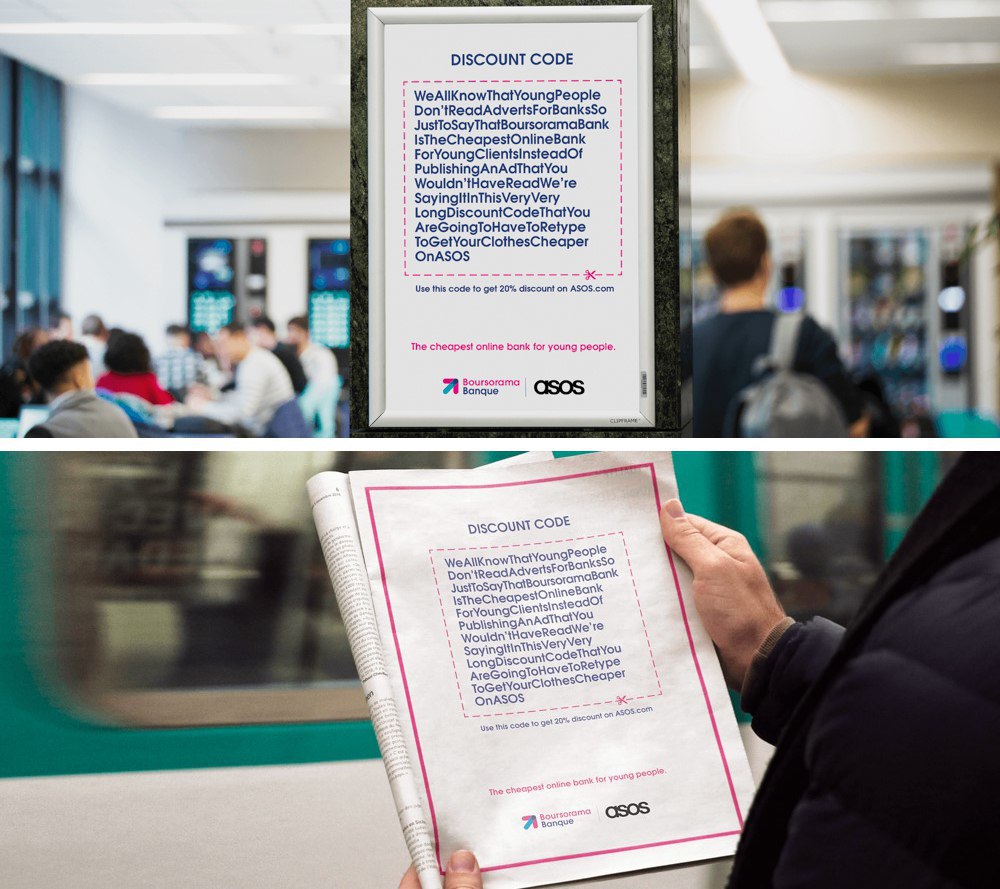 DISCOUNT CODE
WeAllKnowThatYoungPeople
Don'tReadAdvertsForBanksSo
JustToSayThatBoursoramaBank
IsTheCheapestOnlineBank
ForYoungClientsInsteadOf
PublishingAnAdThatYou
Wouldn'tHaveReadWe're
SayingItInThisVeryVery
LongDiscountCodeThatYou
AreGoingToHaveToRetype
ToGetYourClothesCheaper
OnASOS
Use this code to get 20% discount on ASOS.com
The cheapest online bank for young people.
Boursorama
Banque
asos
CLIPFRAME
DISCOUNT CODE
WeAllKnowThatYoungPeople
Don'tReadAdvertsForBanksSo
JustToSayThatBoursoramaBank
IsTheCheapestOnlineBank
ForYoungClientsInsteadOf
PublishingAnAdThatYou
Wouldn'tHaveReadWe're
SayingItInThisVeryVery
LongDiscountCodeThatYou
AreGoingToHaveToRetype
ToGetYourClothesCheaper
OnASOS
Use this code to get 20% discount on ASOS.com
The cheapest online bank for young people.
Boursorama
Banque
asos